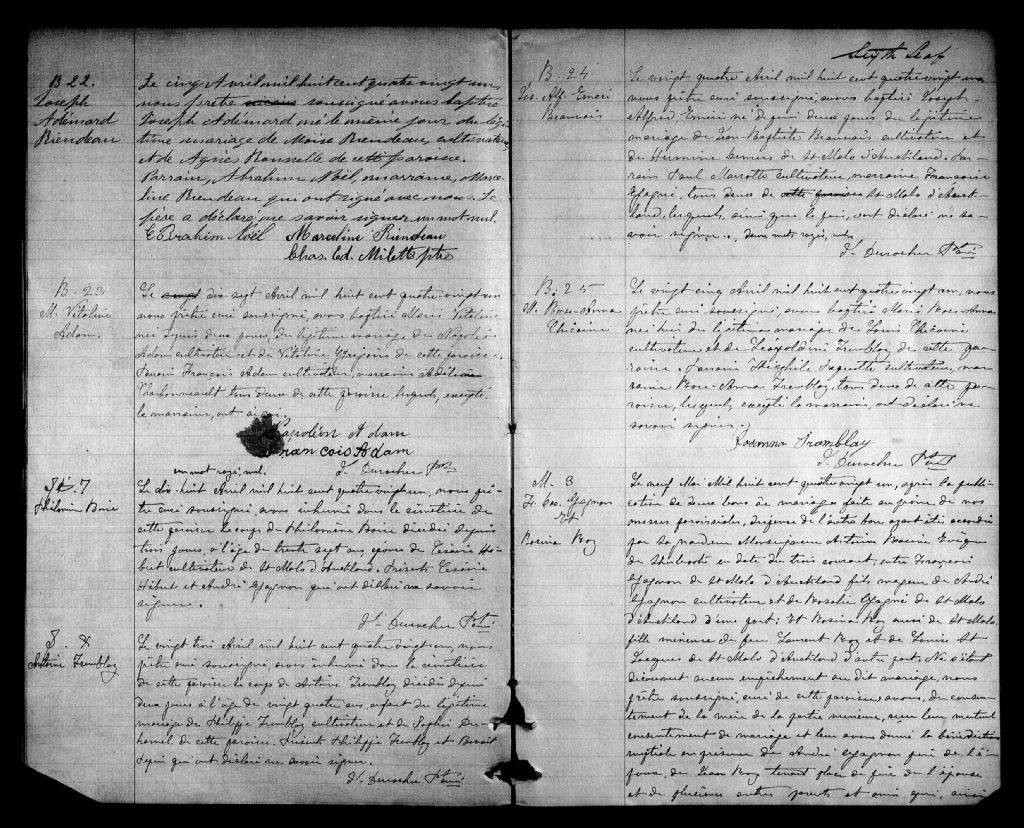 B 22.
Joseph
Adémard
Riendeau
Le cinq Avril mil huit cent quatre vingt un
nous prêtre soussigné avons baptisé
Joseph Adémard né le même jour du légi-
time mariage de Moïse Riendeau, cultivateur,
et de Agnès Rouselle de cette paroisse.
Parrain, Abrahim Noël, marraine, Marce-
line Riendeau qui ont signé avec nous. Le
père a déclaré ne savoir signer. un mot nul.
Ebrahim Noël Marceline Riendeau
Chas. Ed. Milette ptre
B. 23
M. Vitaline
Adam.
Le vingt dix sept Avril mil huit cent quatre-vingt-un
nous prêtre curé soussigné, avons baptisé Marie Vitaline
née depuis deux jours, du légitime mariage de Napoléon
Adam cultivateur et de Vitaline Grégoire de cette paroisse.
Parrain François Adam cultivateur, marraine Adéline
Charbonneault tous deux de cette paroisse, lesquels, excepté
la marraine, ont
Napoléon Adam
Francois Adam
un mot rayé, nul. J. Durocher Ptre
7
Philomène Boire
Le dix-huit Avril mil huit cent quatre vingt un, nous prê-
tre curé soussigné, avons inhumé dans le cimetière de
cette paroisse le corps de Philomène Boire décédée depuis
trois jours, à l'âge de trente sept ans épouse de Césaire Hé-
bert cultivateur de St Malo d'Auckland. Présents Césaire
Hébert et André Gagnon qui ont déclaré ne savoir
signer.
J. Durocher Ptre
S. 8
Antoine Tremblay
Le vingt trois Avril mil huit cent quatre vingt un, nous
prêtre curé soussigné, avons inhumé dans le cimetière
de cette paroisse le corps de Antoine Tremblay décédé depuis
deux jours à l'âge de vingt quatre ans enfant du légitime
mariage de Philippe Tremblay cultivateur et de Sophie Du-
hamel de cette paroisse. Présents Philippe Tremblay et Benoit
qui ont déclaré ne savoir signer.
J. Durocher Ptre curé
Sixth Leaf
B. 24
Jos. Alf. Emeri
Beauvais
Le vingt quatre Avril mil huit cent quatre vingt un
nous prêtre curé soussigné, avons baptisé Joseph
Alfred Emeri né depuis deux jours du légitime
mariage de Jean Baptiste Beauvais cultivateur et
de Hermine de St Malo d'Auckland. Par-
rain Paul Marcotte cultivateur, marraine Françoise
Gagné, tous deux de cette paroisse St Malo d'Auck-
land, lesquels, ainsi que le père, ont déclaré ne sa-
voir signer. deux mots rayés, nuls.
J. Durocher Ptre curé
B. 25
M. Rose-Anna
Chicoine
Le vingt cinq Avril mil huit cent quatre vingt un, nous
prêtre curé soussigné, avons baptisé Marie Rose Anna
née hier du légitime mariage de Louis Chicoine
cultivateur et de Léopoldine Tremblay de cette pa-
roisse. Parrain Théophile Paquette cultivateur, mar-
raine Rose-Anna Tremblay, tous deux de cette pa-
roisse, lesquels, excepté la marraine, ont déclaré ne
savoir signer.
Rosanna Tramblay
J. Durocher Ptre curé
M. 3
Gagnon
Et
Rosina Roy
Le neuf Mai Mil huit cent quatre vingt un, après la publi-
cation de deux bans de mariage faite au prône de nos
messes paroissiales, dispense de l'autre ban ayant été accordée
par sa Grandeur Monseigneur Antoine Racine Evêque
de Sherbrooke en date du trois courant, entre François
Gagnon de St Malo d'Auckland fils majeur de André
Gagnon cultivateur et de Rosalie Gagné de St Malo
d'Auckland d'une part; Et Rosina Roy aussi de St Malo,
fille mineure de feu Laurent Roy et de Louise St
Jacques de St Malo d'Auckland d'autre part. Ne s'étant
découvert aucun empêchement au dit mariage, nous
prêtre soussigné, curé de cette paroisse avons, du consen-
tement de la mère de la partie mineure, reçu leur mutuel
consentement de mariage et leur avons donné la bénédiction
nuptiale en présence de André Gagnon père de l'é-
poux, de Jean Roy tenant place de père de l'épouse
et de plusieurs autres parents et amis qui, ainsi